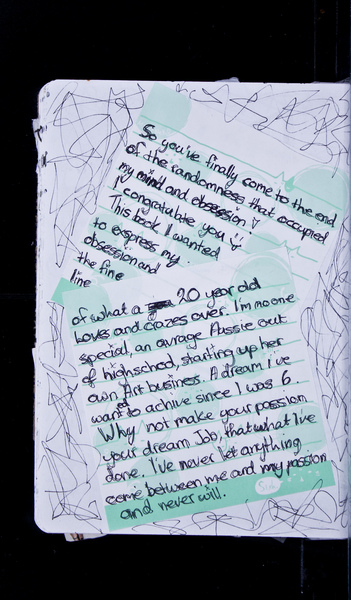 So you've finally come to the end
of the randomness that occupied
my mind and obsession!
I congratulate you
This book I wanted
to express my
obsession and
the fine
line
of what a 20 year old
Loves and crazes over. I'm no one
special, an avrage Aussie out
of highschool, starting up her
own Art business. A dream I've
want to achive since I was 6.
Why not make your passion
your dream Job, that what I've
done. I've never let anything
come between me and my passion
and never will.